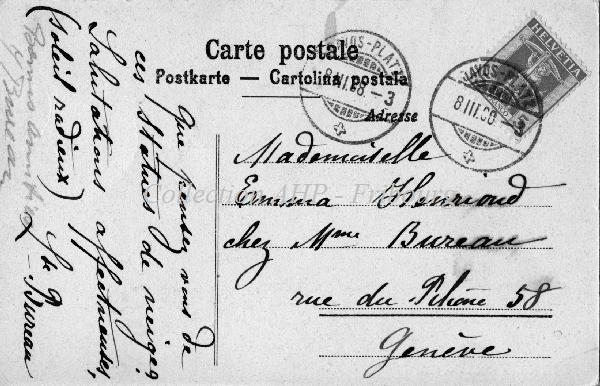 Carte postale
Postkarte — Cartolina postale
Adresse
HELVETIA
DAVOS-PLATZ
8 III.08 - 3
DAVOS-PLATZ
8 III.08 - 3
Mademoiselle
Emma Henriod
chez Mme Bureau
rue du Rhône 58
Genève
Que pensez vous de
ces statues de neige?
Salutations affectueuses,
(soleil radieux)
Bureau
Collection AHP - Fribourg